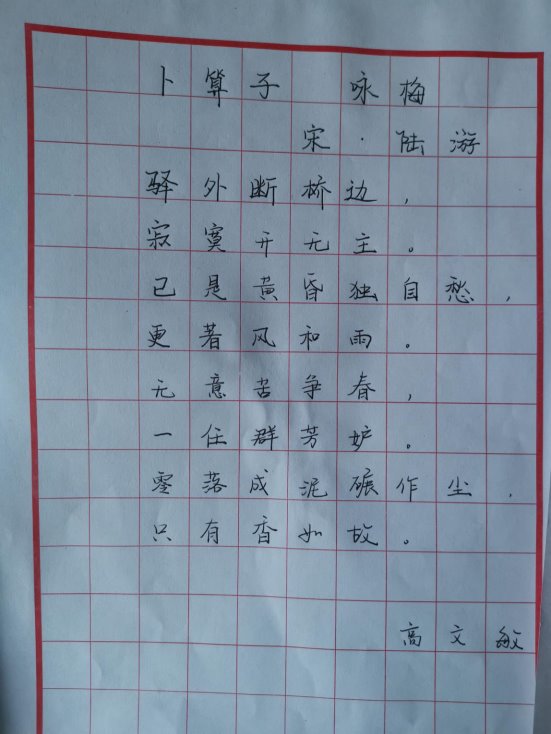 卜算子 咏梅
宋·陆游
驿外断桥边，
寂寞开无主。
已是黄昏独自愁，
更著风和雨。
无意苦争春，
一任群芳妒。
零落成泥碾作尘，
只有香如故。
高文敏